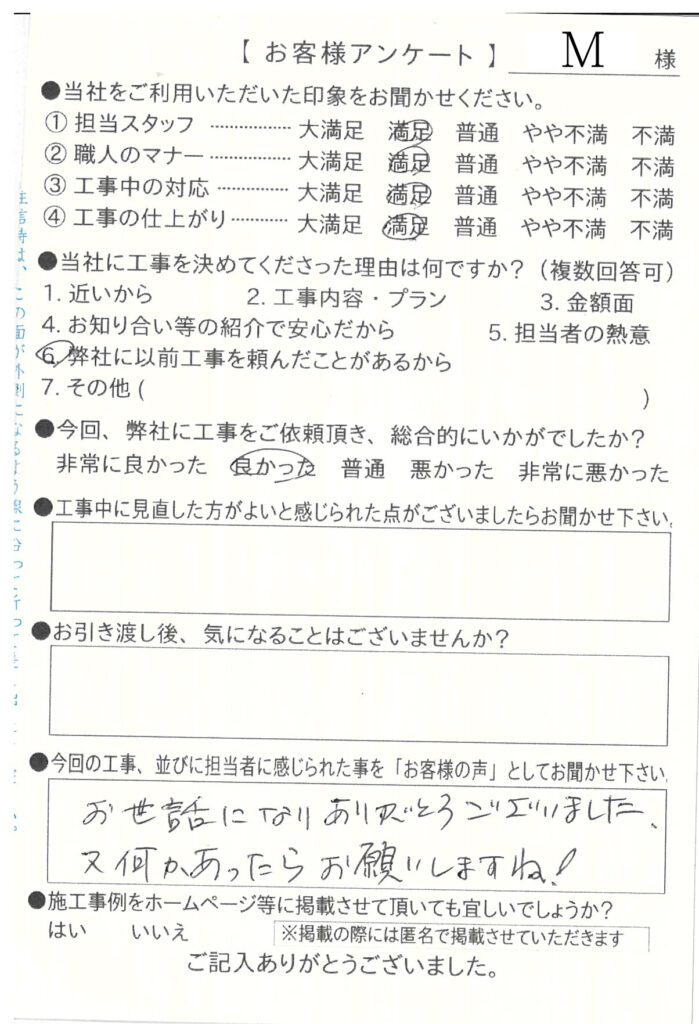 【 お客様アンケート 】 M 様
●当社をご利用いただいた印象をお聞かせください。
① 担当スタッフ ……………… 大満足 満足 普通 やや不満 不満
② 職人のマナー ……………… 大満足 満足 普通 やや不満 不満
③ 工事中の対応 ……………… 大満足 満足 普通 やや不満 不満
④ 工事の仕上がり …………… 大満足 満足 普通 やや不満 不満
●当社に工事を決めてくださった理由は何ですか？（複数回答可）
1. 近いから 2. 工事内容・プラン 3. 金額面
4. お知り合い等の紹介で安心だから 5. 担当者の熱意
6. 弊社に以前工事を頼んだことがあるから
7. その他 ( )
●今回、弊社に工事をご依頼頂き、総合的にいかがでしたか？
非常に良かった 良かった 普通 悪かった 非常に悪かった
●工事中に見直した方がよいと感じられた点がございましたらお聞かせ下さい。
●お引き渡し後、気になることはございませんか？
●今回の工事、並びに担当者に感じられた事を「お客様の声」としてお聞かせ下さい。
お世話になりありがとうございました、
又何かあったらお願いしますね！
●施工事例をホームページ等に掲載させて頂いても宜しいでしょうか？
はい いいえ ※掲載の際には匿名で掲載させていただきます
ご記入ありがとうございました。